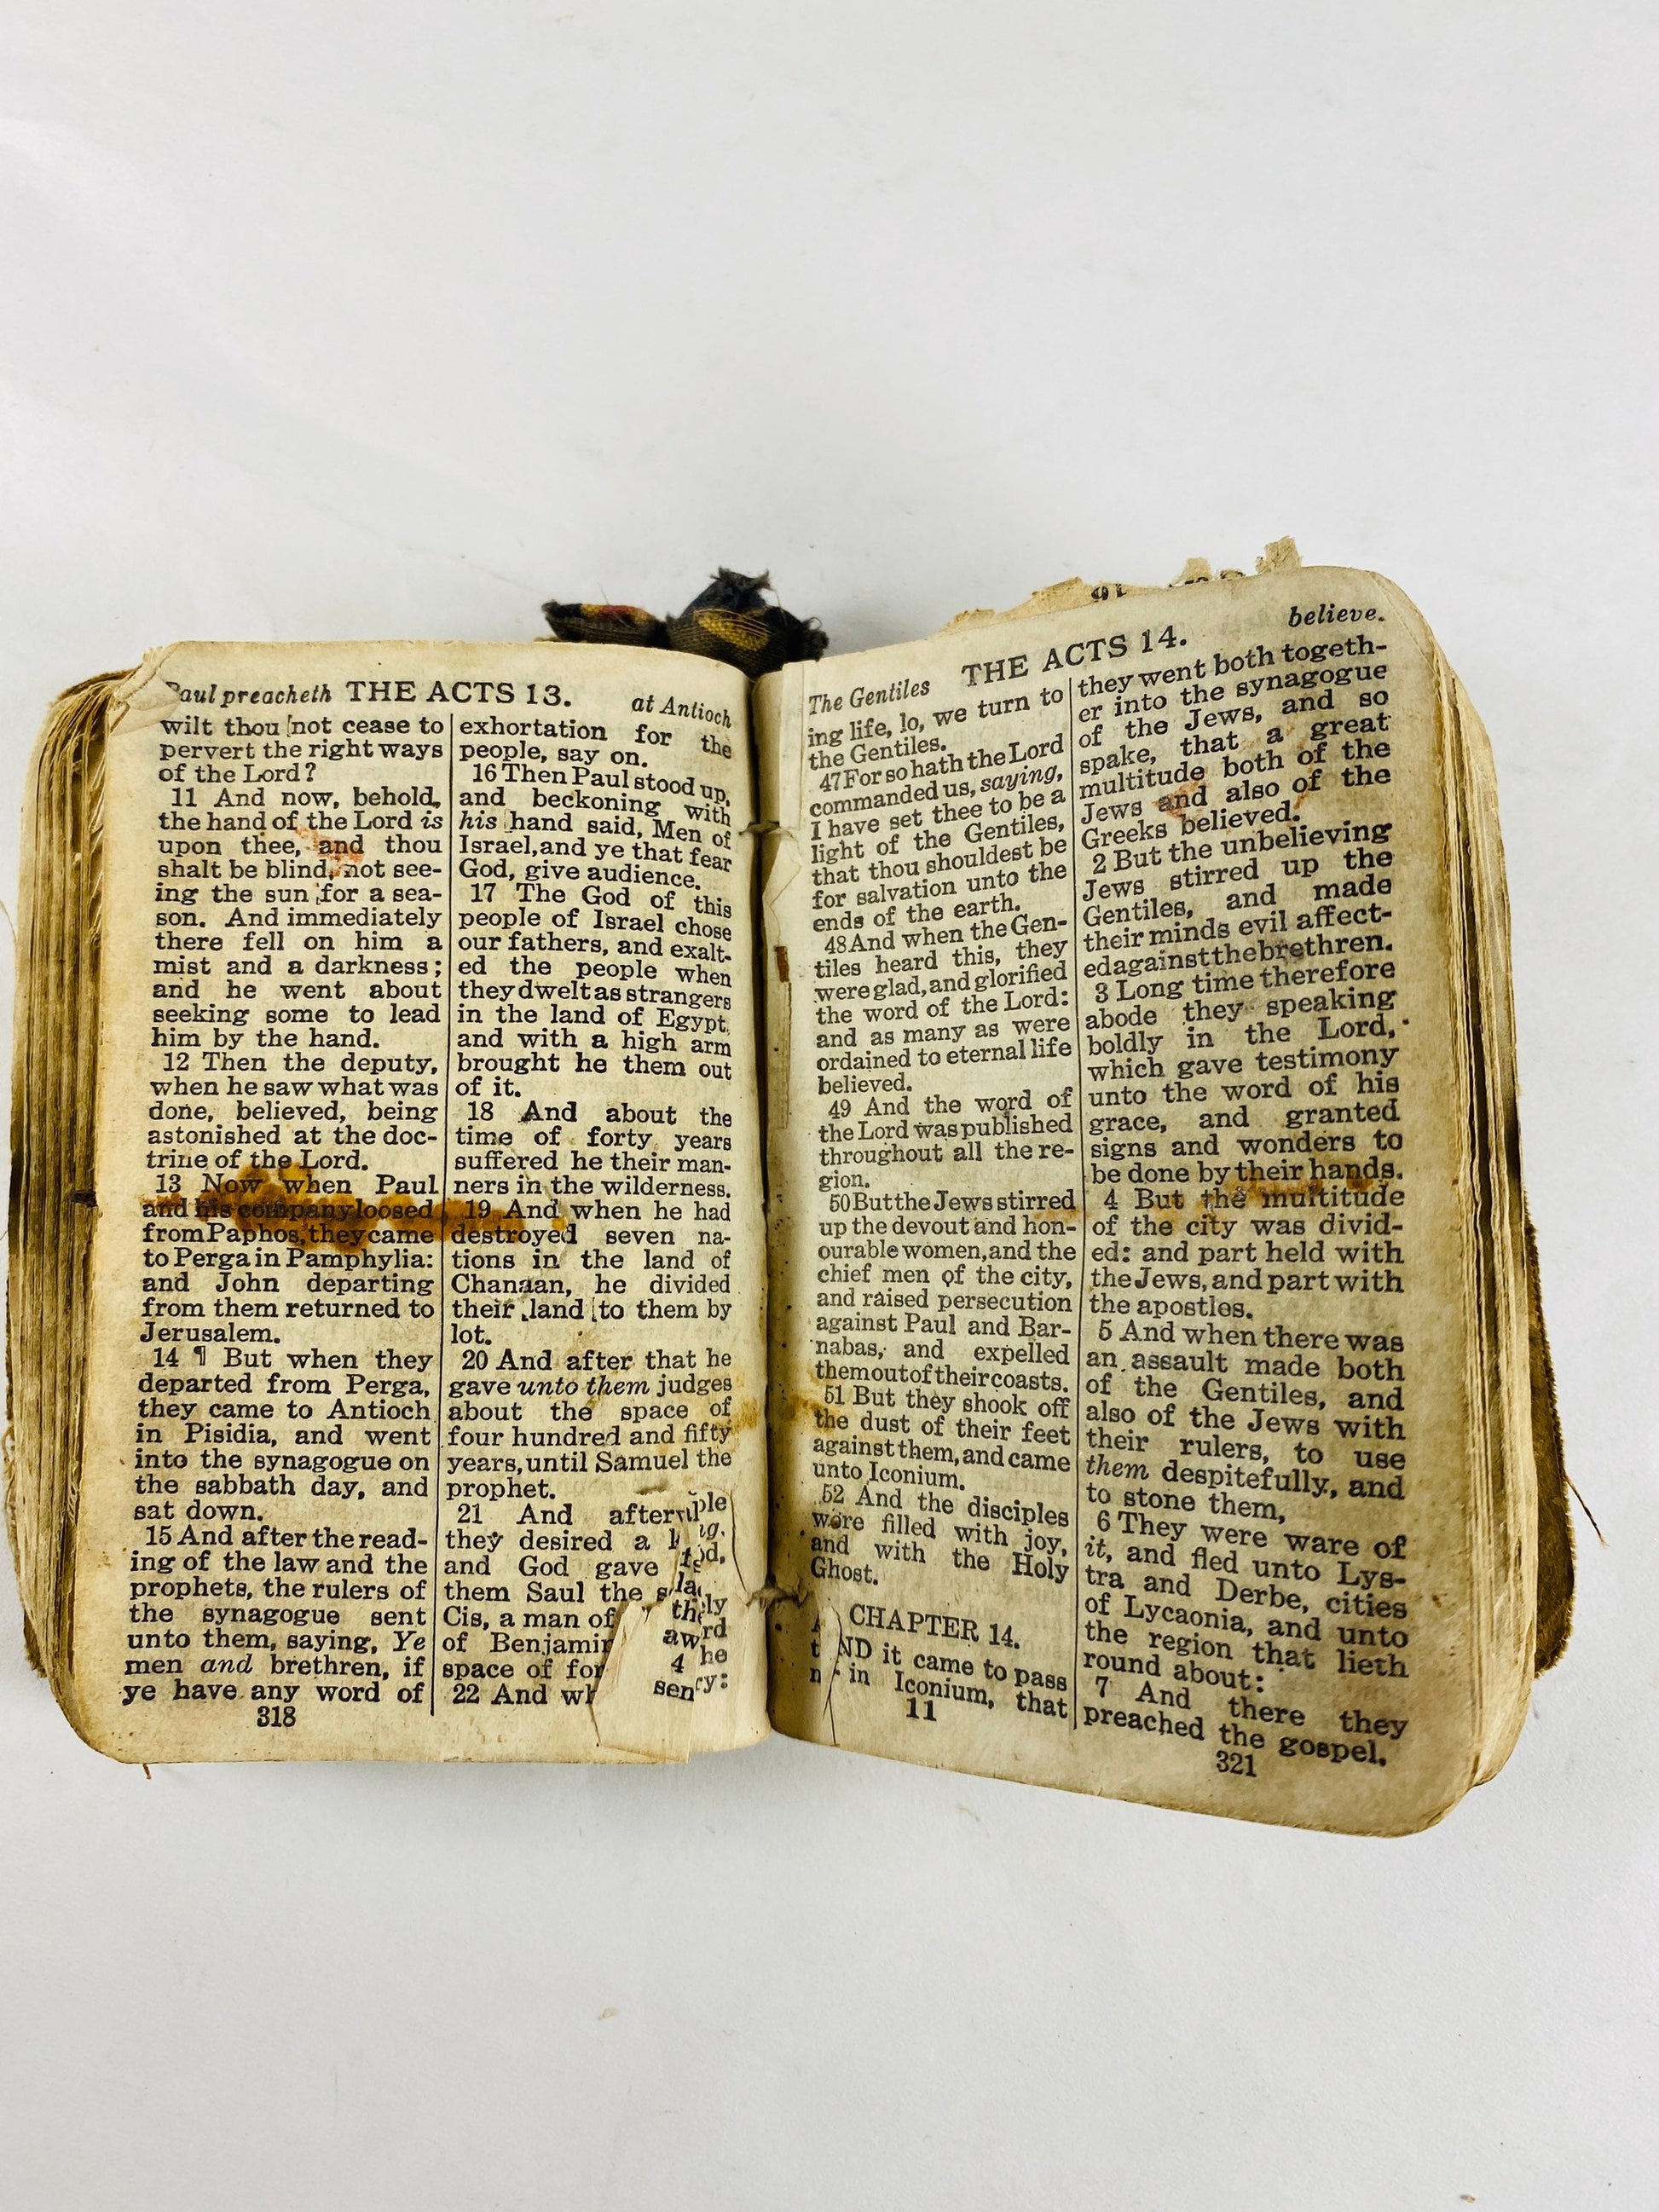 Paul preacheth THE ACTS 13. at Antioch
wilt thou not cease to
pervert the right ways
of the Lord?
11 And now, behold,
the hand of the Lord is
upon thee, and thou
shalt be blind, not see-
ing the sun for a sea-
son. And immediately
there fell on him a
mist and a darkness;
and he went about
seeking some to lead
him by the hand.
12 Then the deputy,
when he saw what was
done, believed, being
astonished at the doc-
trine of the Lord.
13 Now when Paul
and his company loosed
from Paphos, they came
to Perga in Pamphylia:
and John departing
from them returned to
Jerusalem.
14 ¶ But when they
departed from Perga,
they came to Antioch
in Pisidia, and went
into the synagogue on
the sabbath day, and
sat down.
15 And after the read-
ing of the law and the
prophets, the rulers of
the synagogue sent
unto them, saying, Ye
men and brethren, if
ye have any word of
318
exhortation for the
people, say on.
16 Then Paul stood up,
and beckoning with
his hand said, Men of
Israel, and ye that fear
God, give audience.
17 The God of this
people of Israel chose
our fathers, and exalt-
ed the people when
they dwelt as strangers
in the land of Egypt,
and with a high arm
brought he them out
of it.
18 And about the
time of forty years
suffered he their man-
ners in the wilderness.
19 And when he had
destroyed seven na-
tions in the land of
Chanaan, he divided
their land to them by
lot.
20 And after that he
gave unto them judges
about the space of
four hundred and fifty
years, until Samuel the
prophet.
21 And after
they desired a
and God gave
them Saul the
Cis, a man of
of Benjamin
space of for
22 And wh
The Gentiles THE ACTS 14. believe.
ing life, lo, we turn to
the Gentiles.
47 For so hath the Lord
commanded us, saying,
I have set thee to be a
light of the Gentiles,
that thou shouldest be
for salvation unto the
ends of the earth.
48 And when the Gen-
tiles heard this, they
were glad, and glorified
the word of the Lord:
and as many as were
ordained to eternal life
believed.
49 And the word of
the Lord was published
throughout all the re-
gion.
50 But the Jews stirred
up the devout and hon-
ourable women, and the
chief men of the city,
and raised persecution
against Paul and Bar-
nabas, and expelled
them out of their coasts.
51 But they shook off
the dust of their feet
against them, and came
unto Iconium.
52 And the disciples
were filled with joy,
and with the Holy
Ghost.
CHAPTER 14.
ND it came to pass
in Iconium, that
11
they went both togeth-
er into the synagogue
of the Jews, and so
spake, that a great
multitude both of the
Jews and also of the
Greeks believed.
2 But the unbelieving
Jews stirred up the
Gentiles, and made
their minds evil affect-
ed against the brethren.
3 Long time therefore
abode they speaking
boldly in the Lord,
which gave testimony
unto the word of his
grace, and granted
signs and wonders to
be done by their hands.
4 But the multitude
of the city was divid-
ed: and part held with
the Jews, and part with
the apostles.
5 And when there was
an assault made both
of the Gentiles, and
also of the Jews with
their rulers, to use
them despitefully, and
to stone them,
6 They were ware of
it, and fled unto Lys-
tra and Derbe, cities
of Lycaonia, and unto
the region that lieth
round about:
7 And there they
preached the gospel.
321